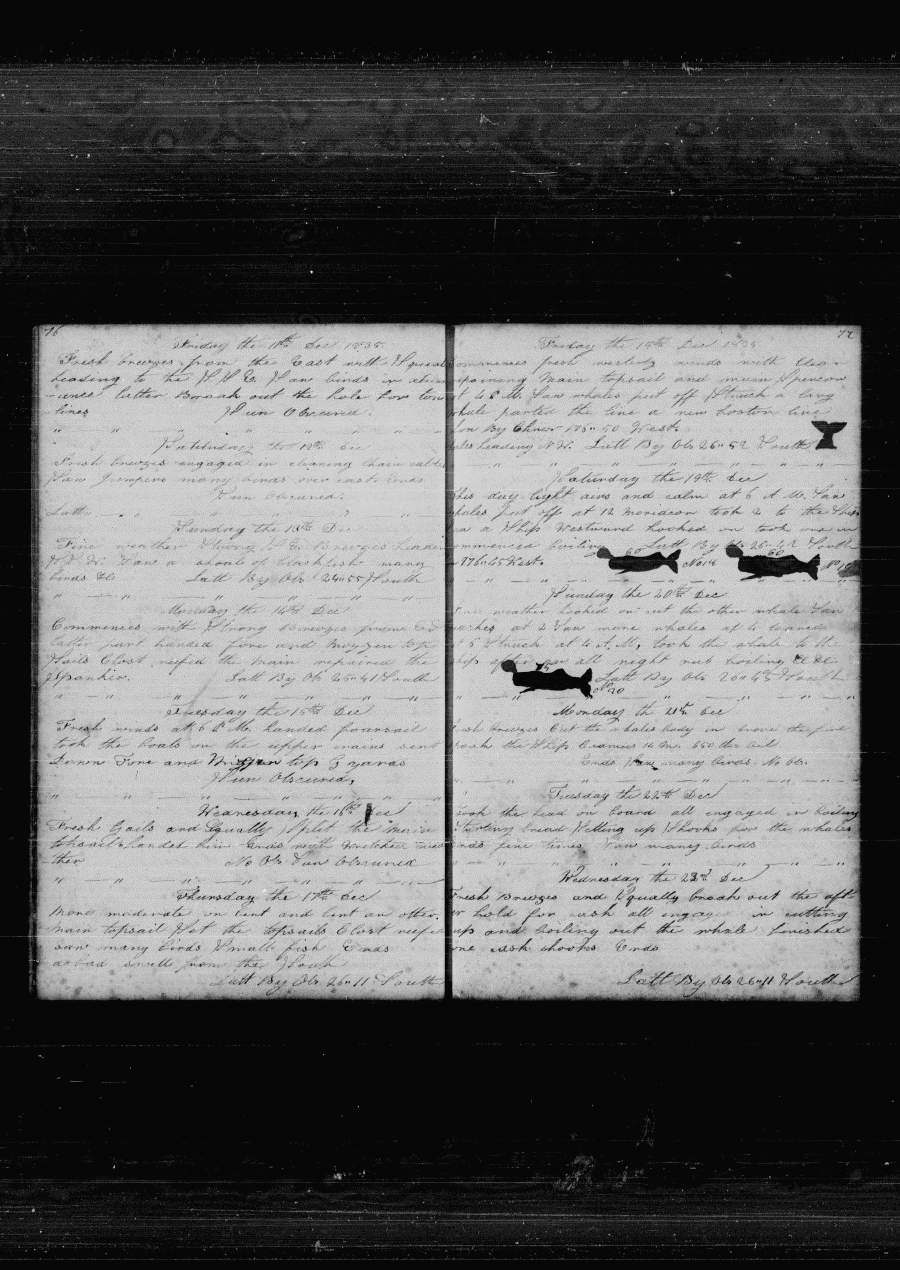 76
Friday the 11th Dec 1835
Fresh breezes from the East with Squalls
heading to the S S E Saw birds in abun
Sun Obscured.
Saturday the 12th Dec
Fresh breezes engaged in cleaning chain cable
Saw Jumpers many birds over cast Ends
Sun Obscured.
Latt
Sunday the 13th Dec
Fine weather Strong S E Breezes headen
Saw a shoal of blackfish many
birds &c Latt By Obs 24"55 South
Monday the 14th Dec
Commences with Strong Breezes from
latter part handed fore and mizzen top
Sails Clost reefed the main repaired the
Spanker. Latt By Obs 25"41 South
Tuesday the 15th Dec
Fresh winds at 6 P M. handed foursail
took the boats on the upper crains sent
Down Fore and Mizzen top g yards
Sun Obscured,
Wednesday the 16th Dec
Fresh Gails and Squally Split the main
topsail
ther No Obs Sun Obscured
Thursday the 17th Dec
More moderate on bent and bent an other
main topsail Set the topsails Clost reefed
saw many birds & small fish Ends
a bad smell from the South
Latt By Obs 26"11 South
77
Friday the 18th Dec 1835
ommences fresh westerly winds with Clear
epairing Main topsail and main Spencer
at 4 P M. Saw whales put off Struck a larg
whale parted the line a new boston line
Lon By Chnor 176"50 West.
ales heading N.W. Latt By Obs 26"52 South
Saturday the 19th Dec
this day light airs and calm at 6 A M. Saw
whales put off at 12 meridean took 2 to the Ship
saw a Ship Westward hooked on took one in
ommenced boiling Latt By Obs 26"42 South
n 176"45 West.
60
No 18
60
No 19
Sunday the 20th Dec
ine weather hooked on cut the other whale Saw
at 2 Saw more whales at 4 lowered
t 5 Struck at 4 A.M, took the whale to the
hip all night nut boiling &c &c.
Latt By Obs 26"45 South
No 20
Monday the 21st Dec
resh breezes Cut the whales body in
the Ship Ends Saw many birds. No Obs.
Tuesday the 22th Dec
took the head on board all engaged in boiling
Setting up Shooks for the whales
Ends fine times Saw many birds
Wednesday the 23th Dec
Fresh Breezes and Squally break out the aft
er hold for cask all engaged in cutting
up and boiling out the whale finished
one cask shooks Ends
Latt By Obs 26"11 South